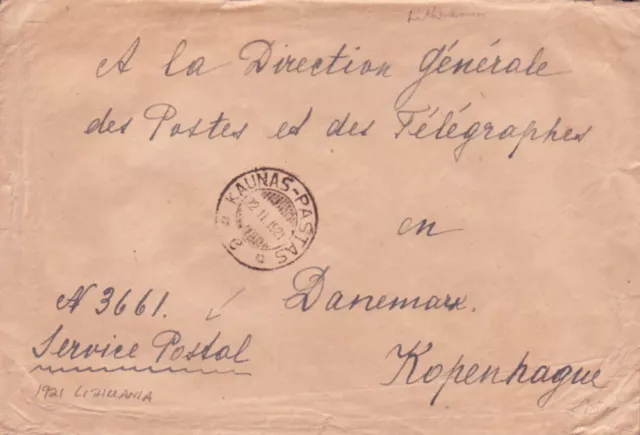 Lithuanian
A la Direction Générale
des Postes et des Télégraphes
KAUNAS-PAŠTAS
22 II 1921
2
en
N 3661.
Danemark.
Service Postal
Kopenhague
1921 LITHUANIA